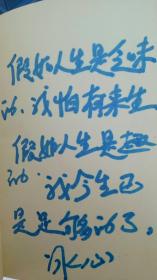 假如人生是乏味
的，我怕有来生
假如人生是趣
的，我今生已
是足够的了。
冰心